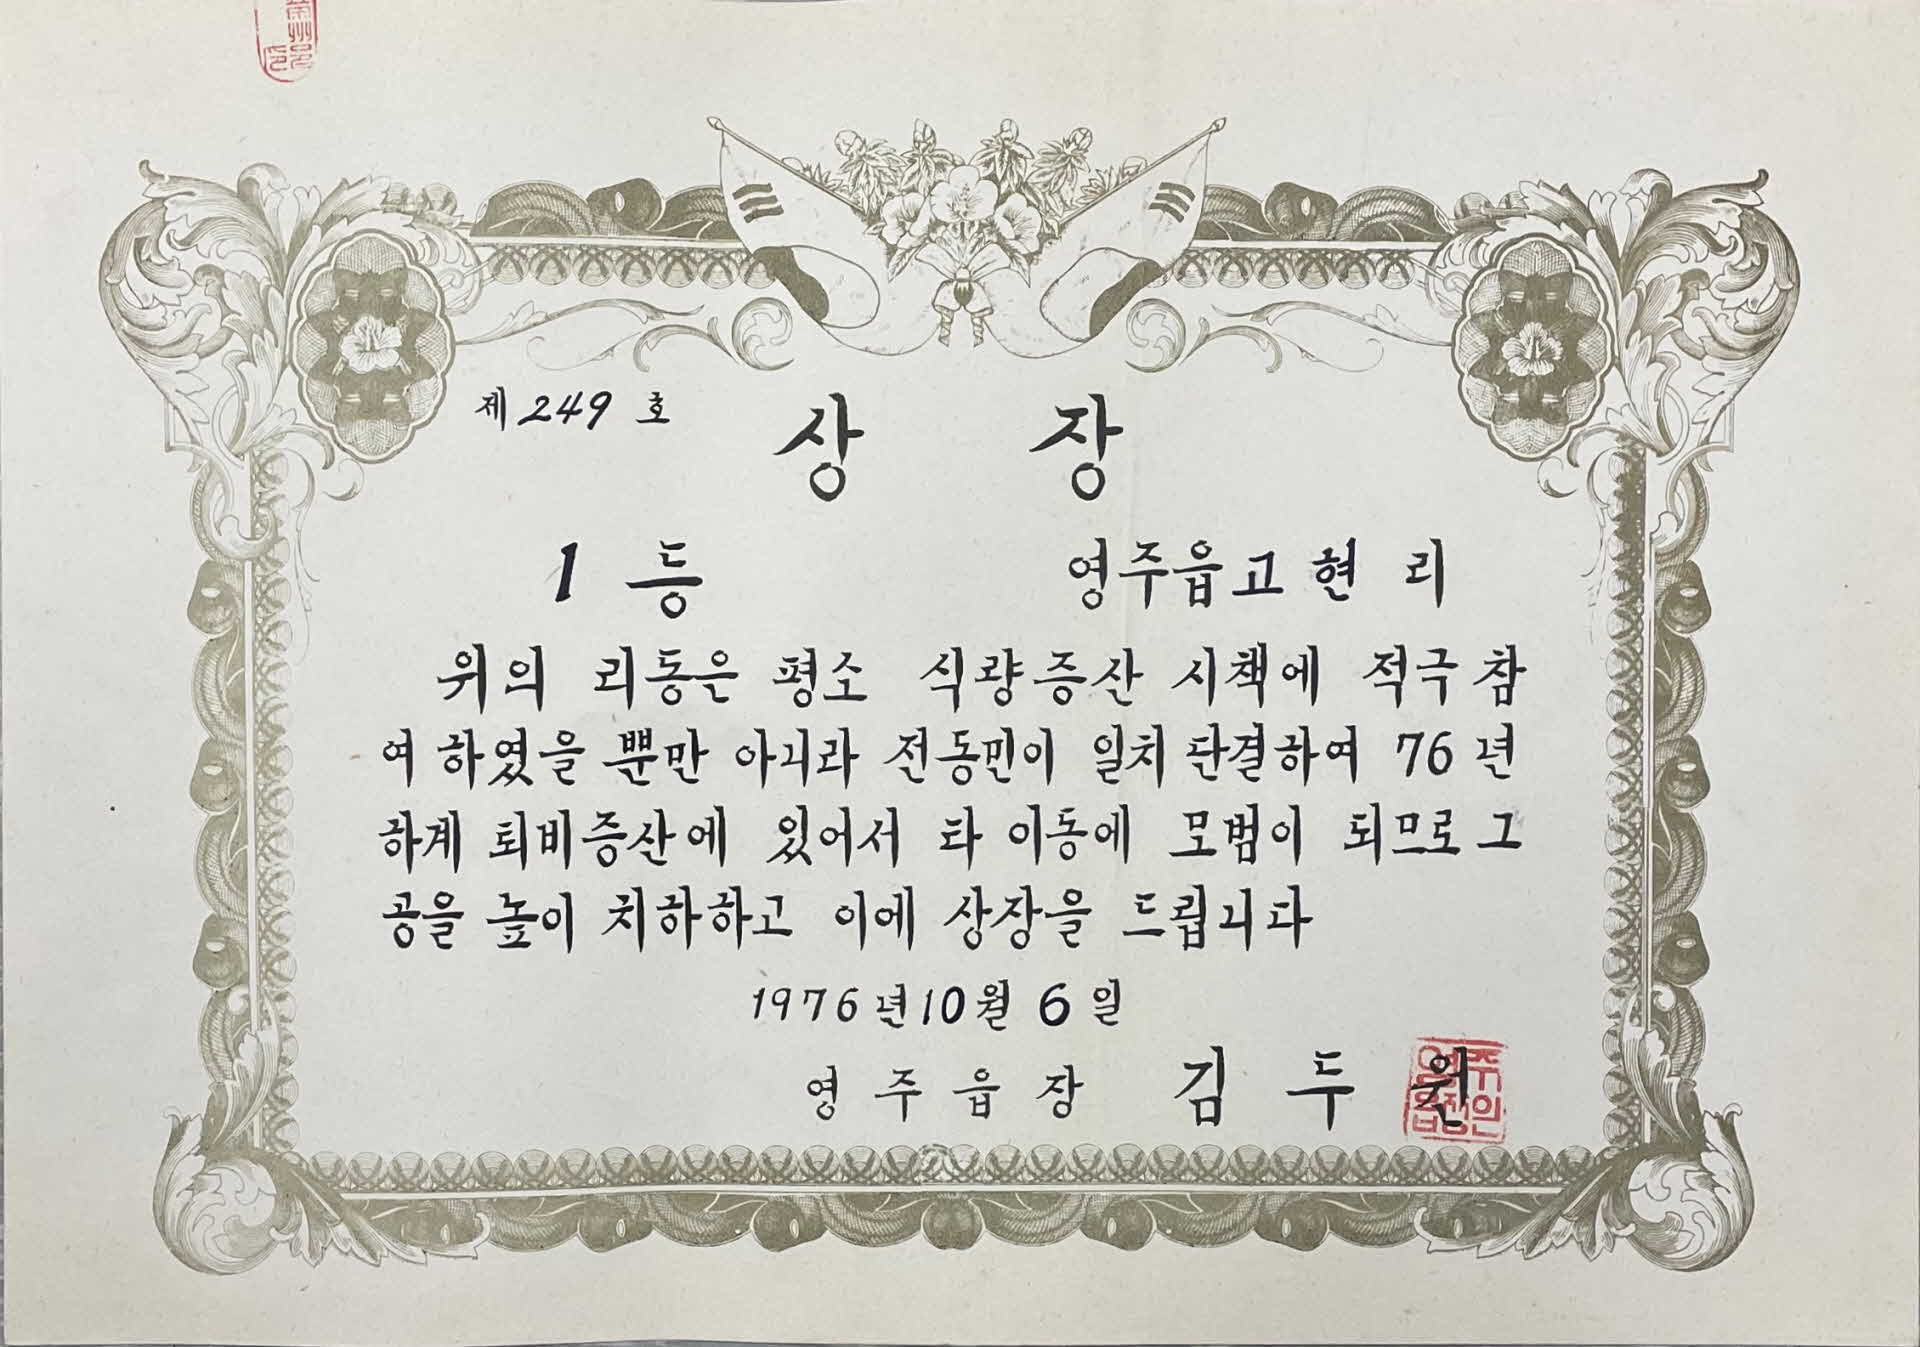 제 249 호
상 장
1 등
영주읍고현 리
위의 리동은 평소 식량증산 시책에 적극 참
여 하였을 뿐만 아니라 전동민이 일치 단결하여 76년
하계 퇴비증산에 있어서 타 이동에 모범이 되므로 그
공을 높이 치하하고 이에 상장을 드립니다
1976년 10월 6일
영주읍장 김두원
영주읍장인